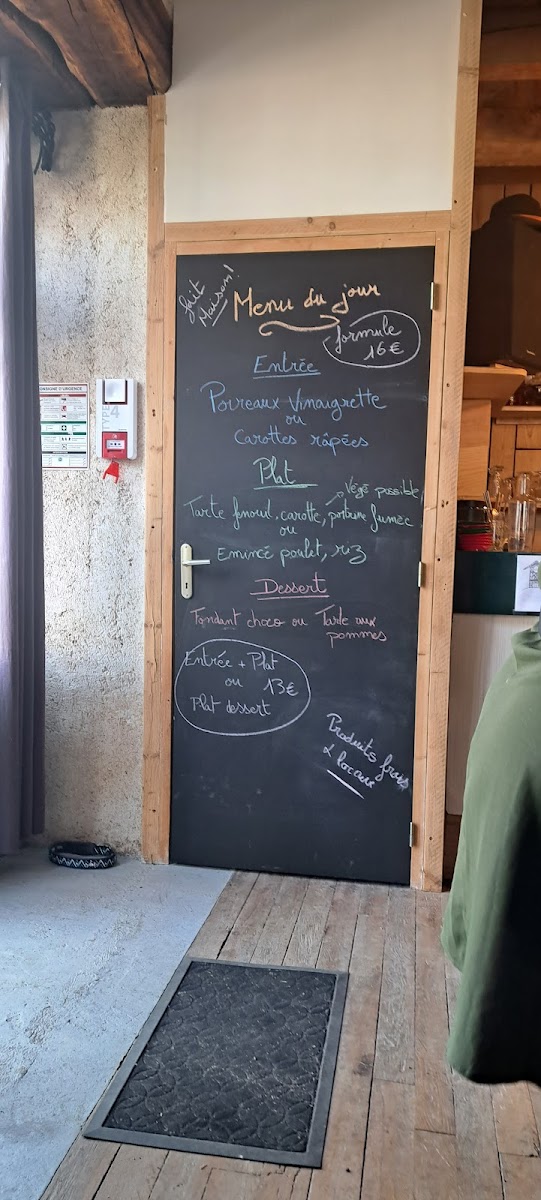 fait
Maison!
Menu du jour
formule
16€
Entrée
Poireaux Vinaigrette
ou
Carottes râpées
Plat
Végé possible
Tarte fenouil, carotte, poitrine fumée
ou
Emincé poulet, riz
Dessert
Fondant choco ou Tarte aux
pommes
Entrée + Plat
ou 13€
Plat dessert
Produits frais
& locaux
TYPE 4